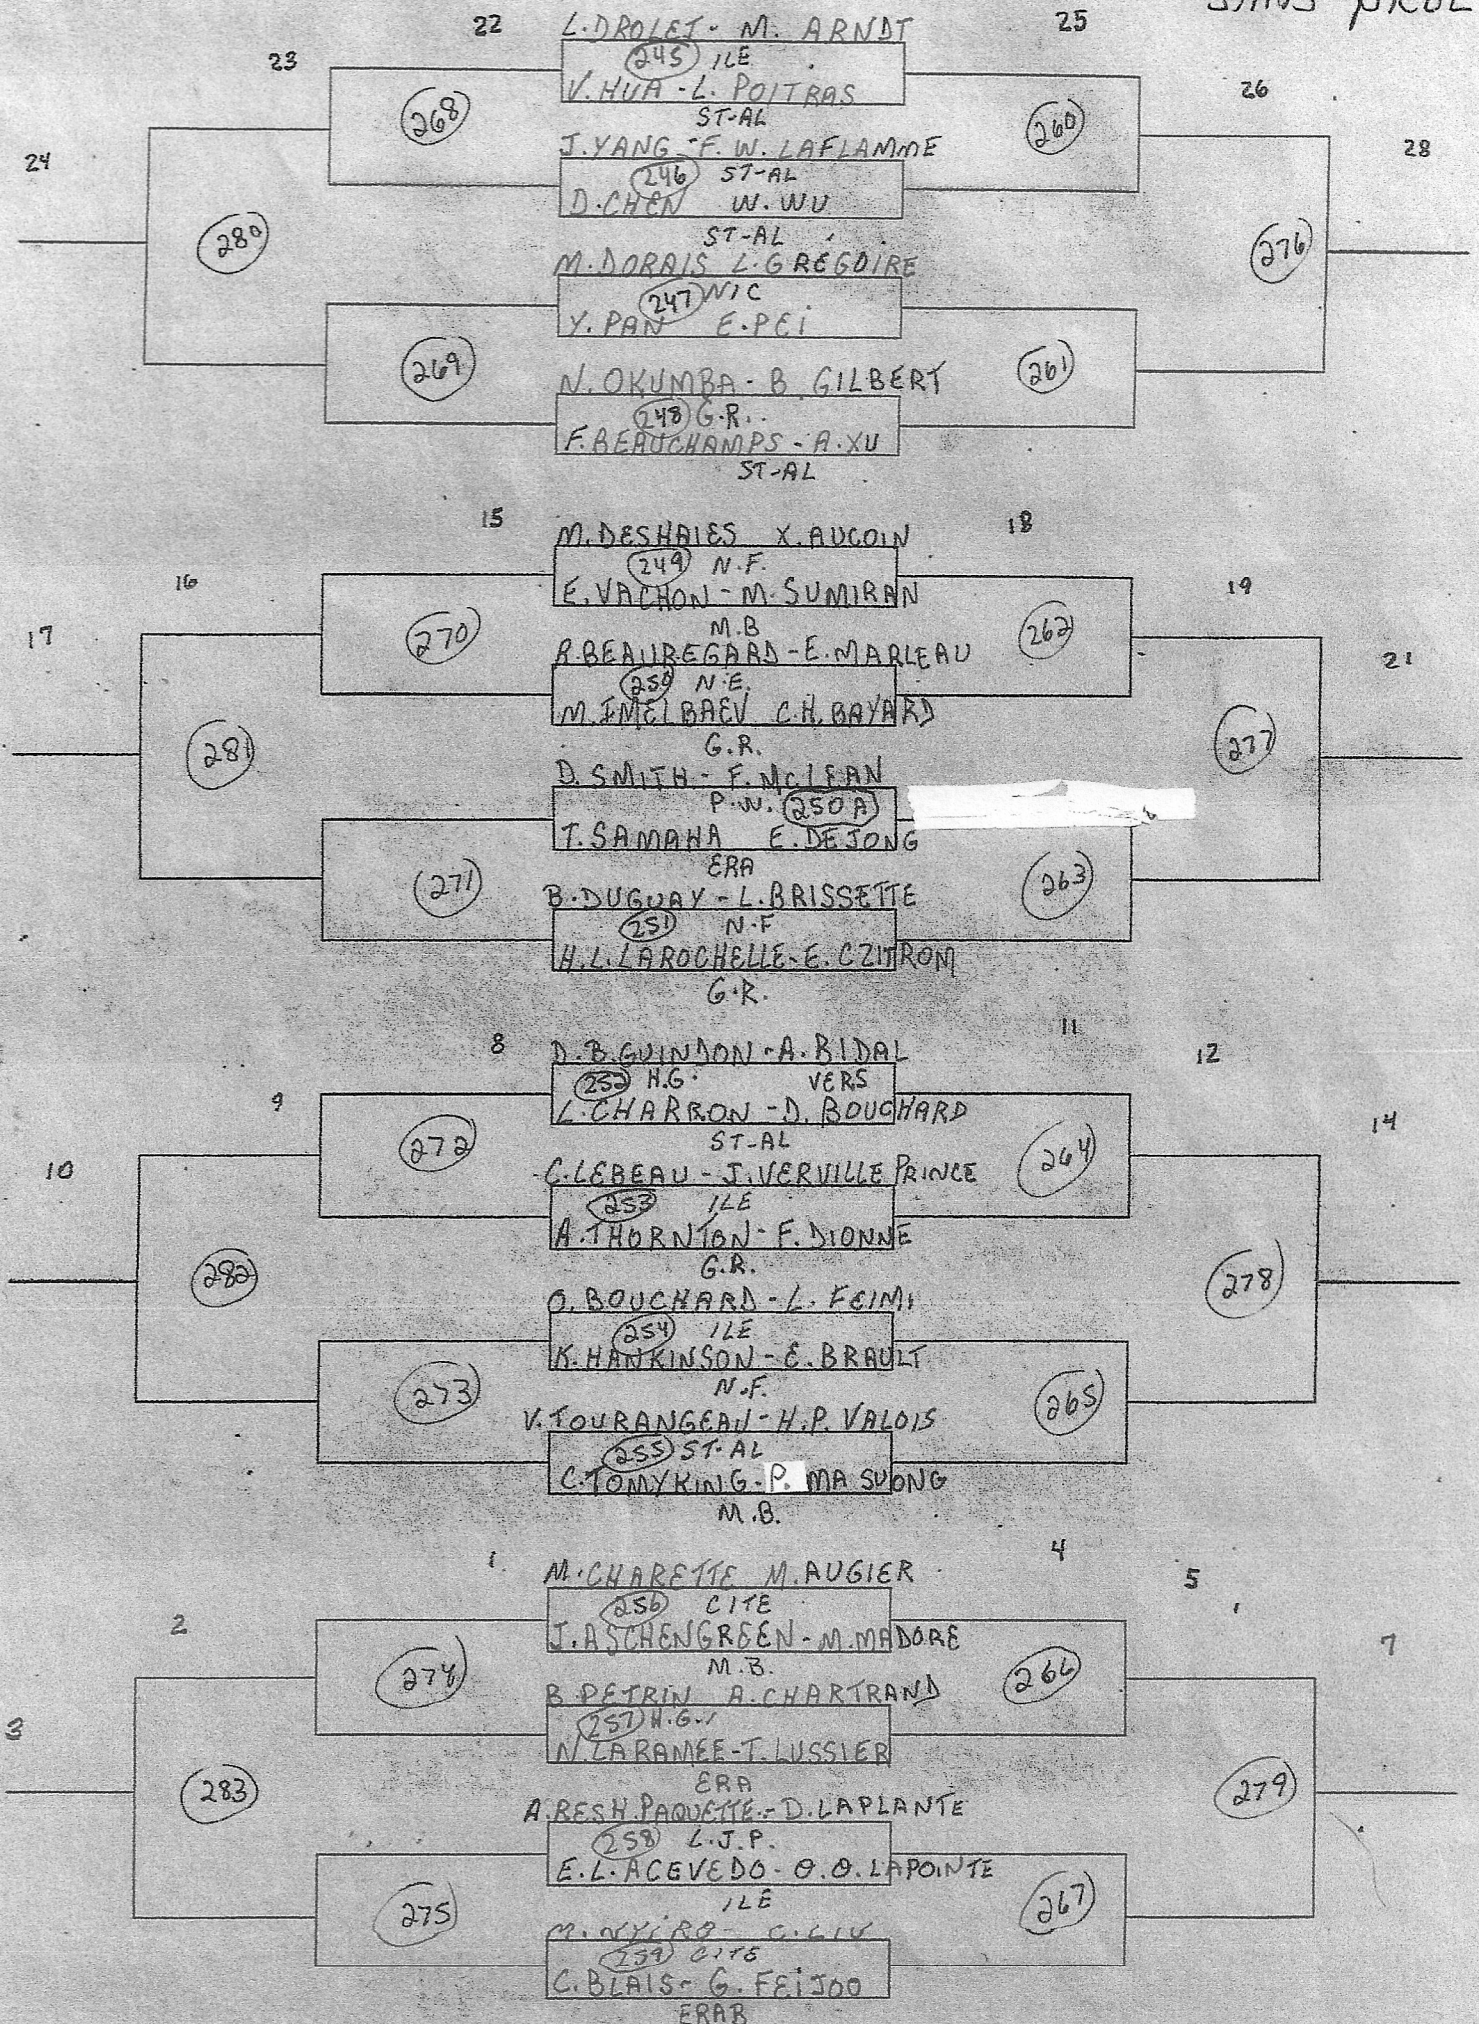 22
L. DROLET - M. ARNDT
25
SANS
23
245 ILE
V. HUA - L. POITRAS
26
268
ST-AL
260
J. YANG - F. W. LAFLAMME
24
28
246 ST-AL
D. CHEN W. WU
280
ST-AL
276
M. DORAIS L. GREGOIRE
247 NIC
Y. PAN E. PEI
269
N. OKUMBA - B. GILBERT
261
248 G.R.
F. BEAUCHAMPS - A. XU
ST-AL
15
M. DESHAIES X. AUCOIN
18
16
249 N.F.
E. VACHON - M. SUMIRAN
19
17
270
M.B
262
R. BEAUREGARD - E. MARLEAU
21
250 N.E.
M. IMELBAEV C.H. BAYARD
281
G.R.
277
D. SMITH - F. MCLEAN
P.W. 250A
T. SAMAHA E. DEJONG
271
ERA
263
B. DUGUAY - L. BRISSETTE
251 N.F
H.L. LAROCHELLE - E. CZITROM
G.R.
8
D.B. GUINDON - A. BIDAL
11
12
9
252 H.G. VERS
L. CHARRON - D. BOUCHARD
14
272
ST-AL
264
10
C. LEBEAU - J. VERVILLE PRINCE
253 ILE
A. THORNTON - F. DIONNE
282
G.R.
278
O. BOUCHARD - L. FEIMI
254 ILE
K. HANKINSON - E. BRAULT
273
N.F.
265
V. TOURANGEAU - H.P. VALOIS
255 ST-AL
C. TOMYKING - P. MA SUONG
M.B.
1
M. CHARETTE M. AUGIER
4
5
2
256 CITE
J. ASCHENGREEN - M. MADORE
7
274
M.B.
266
B. PETRIN A. CHARTRAND
3
257 H.G.
N. LARAMEE - T. LUSSIER
283
ERA
279
A. RESH. PAQUETTE - D. LAPLANTE
258 L.J.P.
E.L. ACEVEDO - O.O. LAPOINTE
275
ILE
267
M. NYIRO - C. LIU
259 CITE
C. BLAIS - G. FEIJOO
ERAB